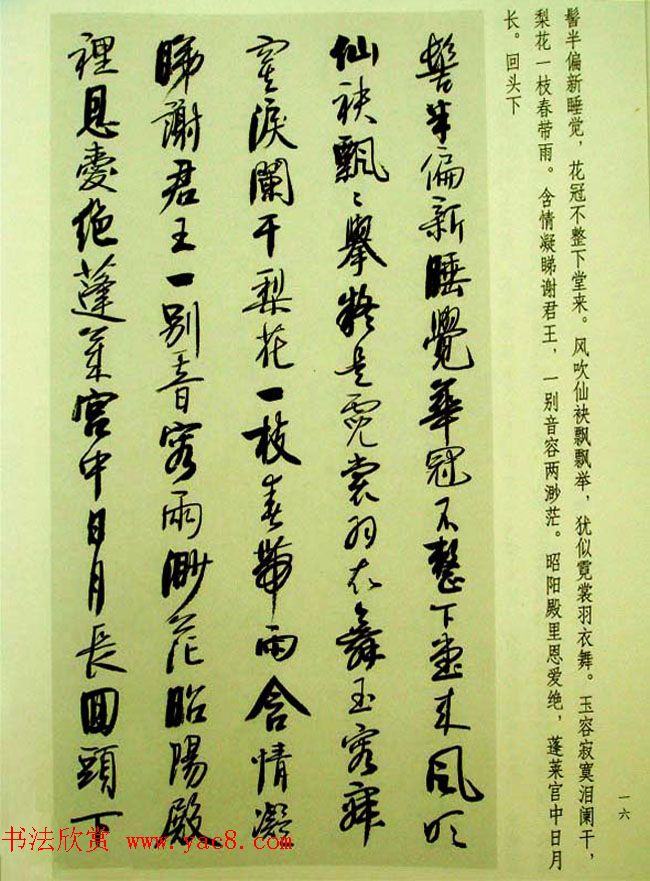 髻半偏新睡觉，花冠不整下堂来。风吹仙袂飘飘举，犹似霓裳羽衣舞。玉容寂寞泪阑干，
梨花一枝春带雨。含情凝睇谢君王，一别音容两渺茫。昭阳殿里恩爱绝，蓬莱宫中日月
长。回头下
髻半偏新睡覺華冠不整下堂来風吹
仙袂飄〻舉猶是霓裳羽衣舞玉容寂
寞淚闌干梨花一枝春帶雨含情凝
睇謝君王一别音容兩渺茫昭陽殿
裡恩愛絶蓬萊宫中日月長回頭下
一六
书法欣赏 www.yac8.com